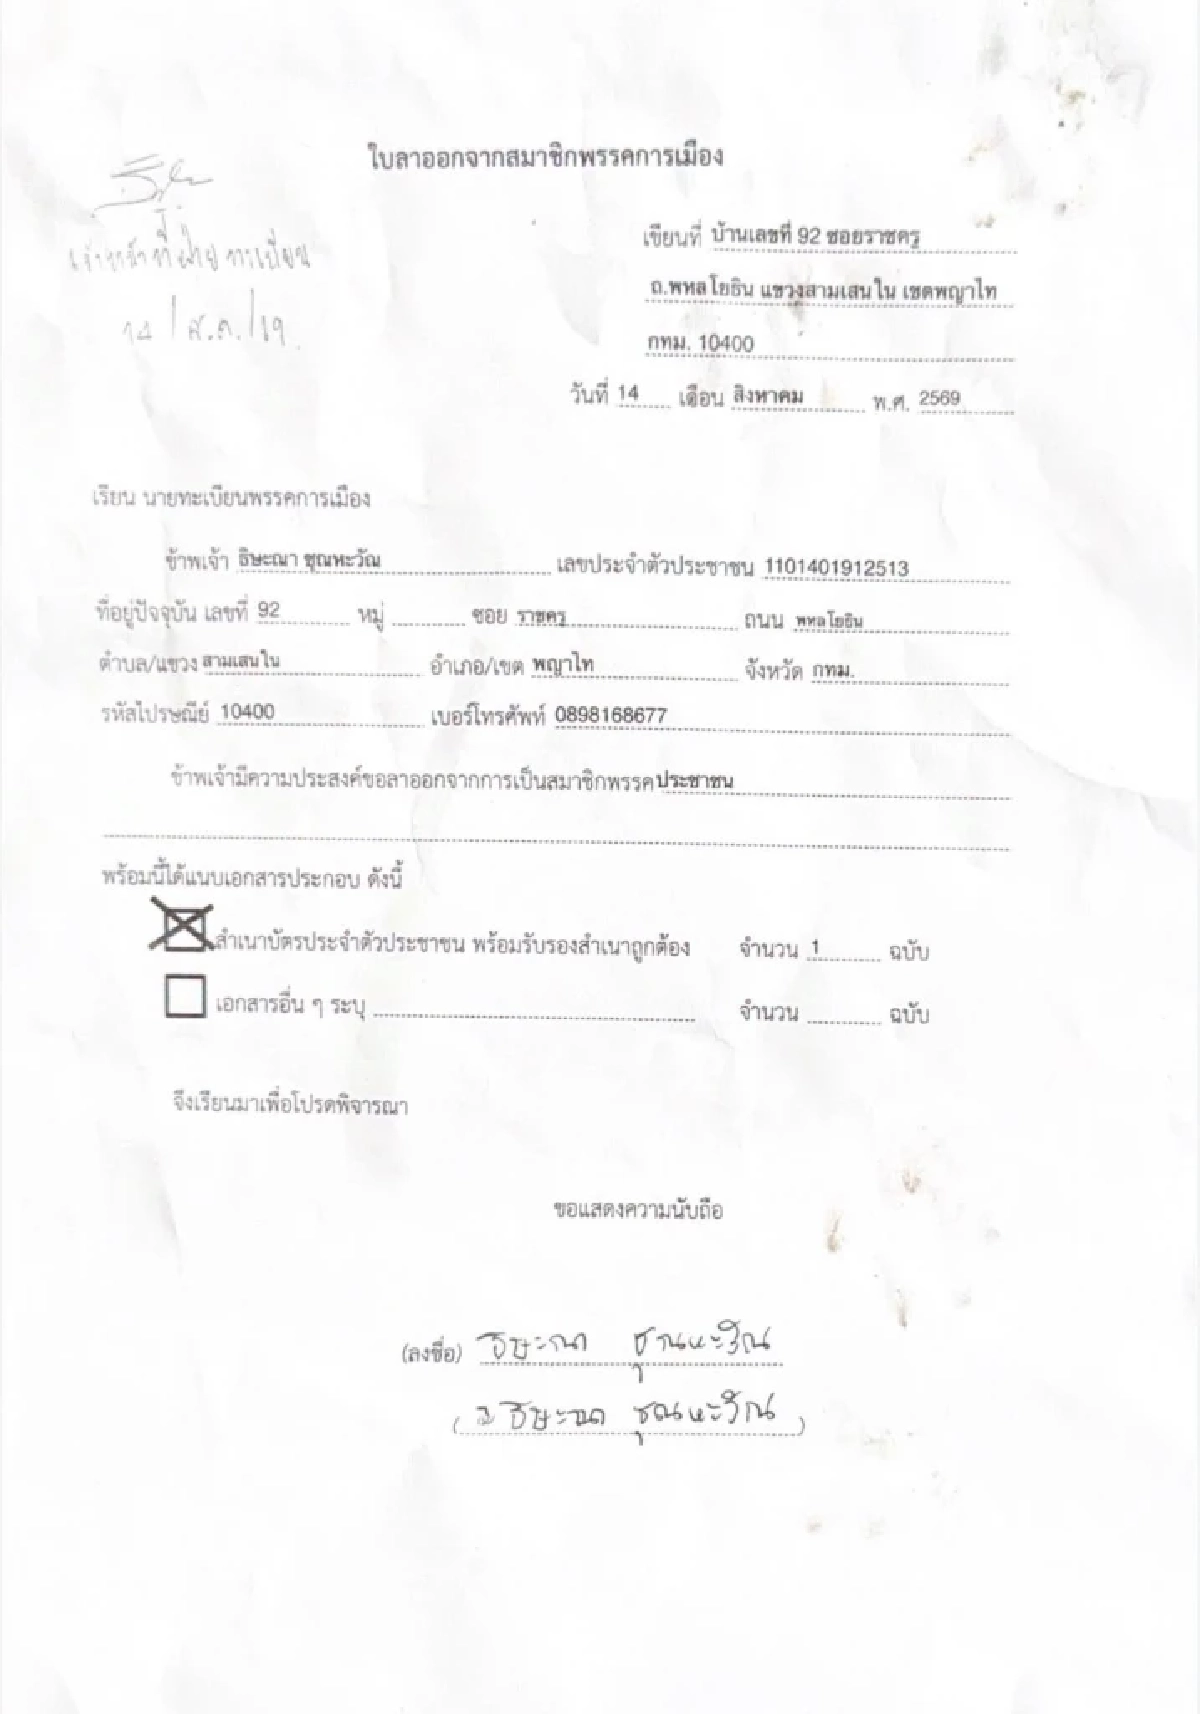 ใบลาออกจากสมาชิกพรรคการเมือง
เจ้าหน้าที่ฝ่ายทะเบียน
14 / ส.ค. / 69
เขียนที่ บ้านเลขที่ 92 ซอยราชครู
ถ.พหลโยธิน แขวงสามเสนใน เขตพญาไท
กทม. 10400
วันที่ 14 เดือน สิงหาคม พ.ศ. 2569
เรียน นายทะเบียนพรรคการเมือง
ข้าพเจ้า ธิษะณา ชุณหะวัณ เลขประจำตัวประชาชน 1101401912513
ที่อยู่ปัจจุบัน เลขที่ 92 หมู่ ซอย ราชครู ถนน พหลโยธิน
ตำบล/แขวง สามเสนใน อำเภอ/เขต พญาไท จังหวัด กทม.
รหัสไปรษณีย์ 10400 เบอร์โทรศัพท์ 0898168677
ข้าพเจ้ามีความประสงค์ขอลาออกจากการเป็นสมาชิกพรรค ประชาชน
พร้อมนี้ได้แนบเอกสารประกอบ ดังนี้
สำเนาบัตรประจำตัวประชาชน พร้อมรับรองสำเนาถูกต้อง จำนวน 1 ฉบับ
เอกสารอื่น ๆ ระบุ จำนวน ฉบับ
จึงเรียนมาเพื่อโปรดพิจารณา
ขอแสดงความนับถือ
(ลงชื่อ) ธิษะณา ชุณหะวัณ
( ธิษะณา ชุณหะวัณ )